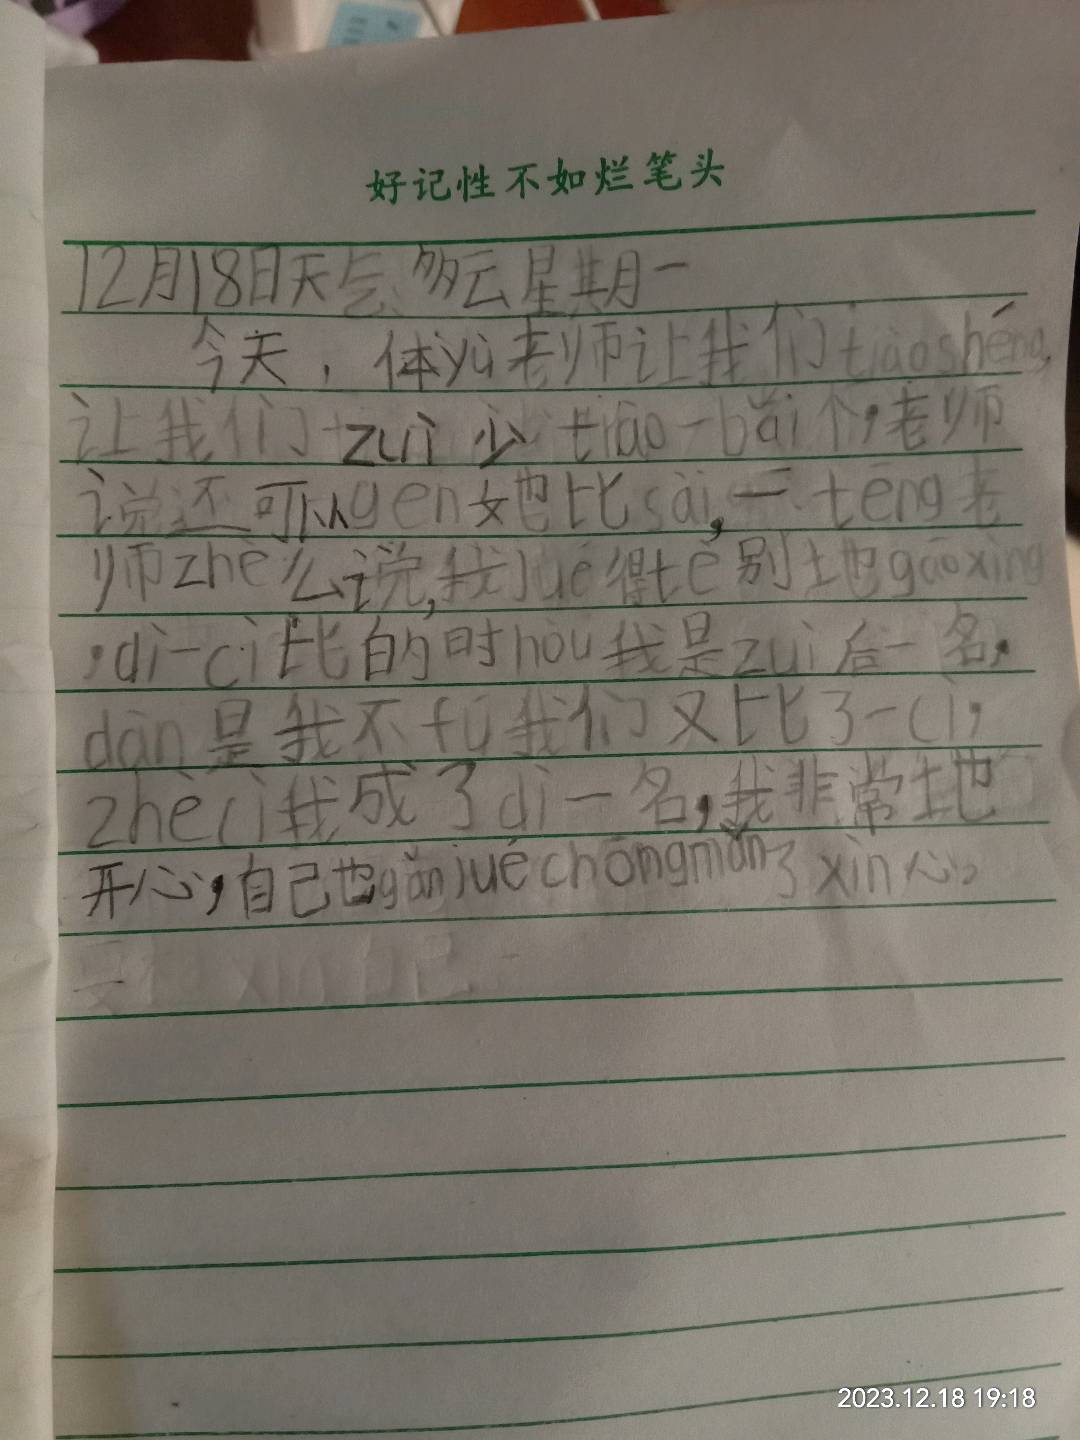 好记性不如烂笔头
12月18日天气多云星期一
今天，体yù老师让我们tiàoshéng,
让我们zuì少tiào一bǎi个，老师
说还可以gēn她比sài,一tēng老
师zhè么说,我jué得tè别地gāoxìng
，dì一cì比的时hòu我是zuì后一名，
dàn是我不fú我们又比了一cì，
zhècì我成了dì一名，我非常地
开心，自己也gǎnjuéchōngmǎn了xìn心。
2023.12.18 19:18